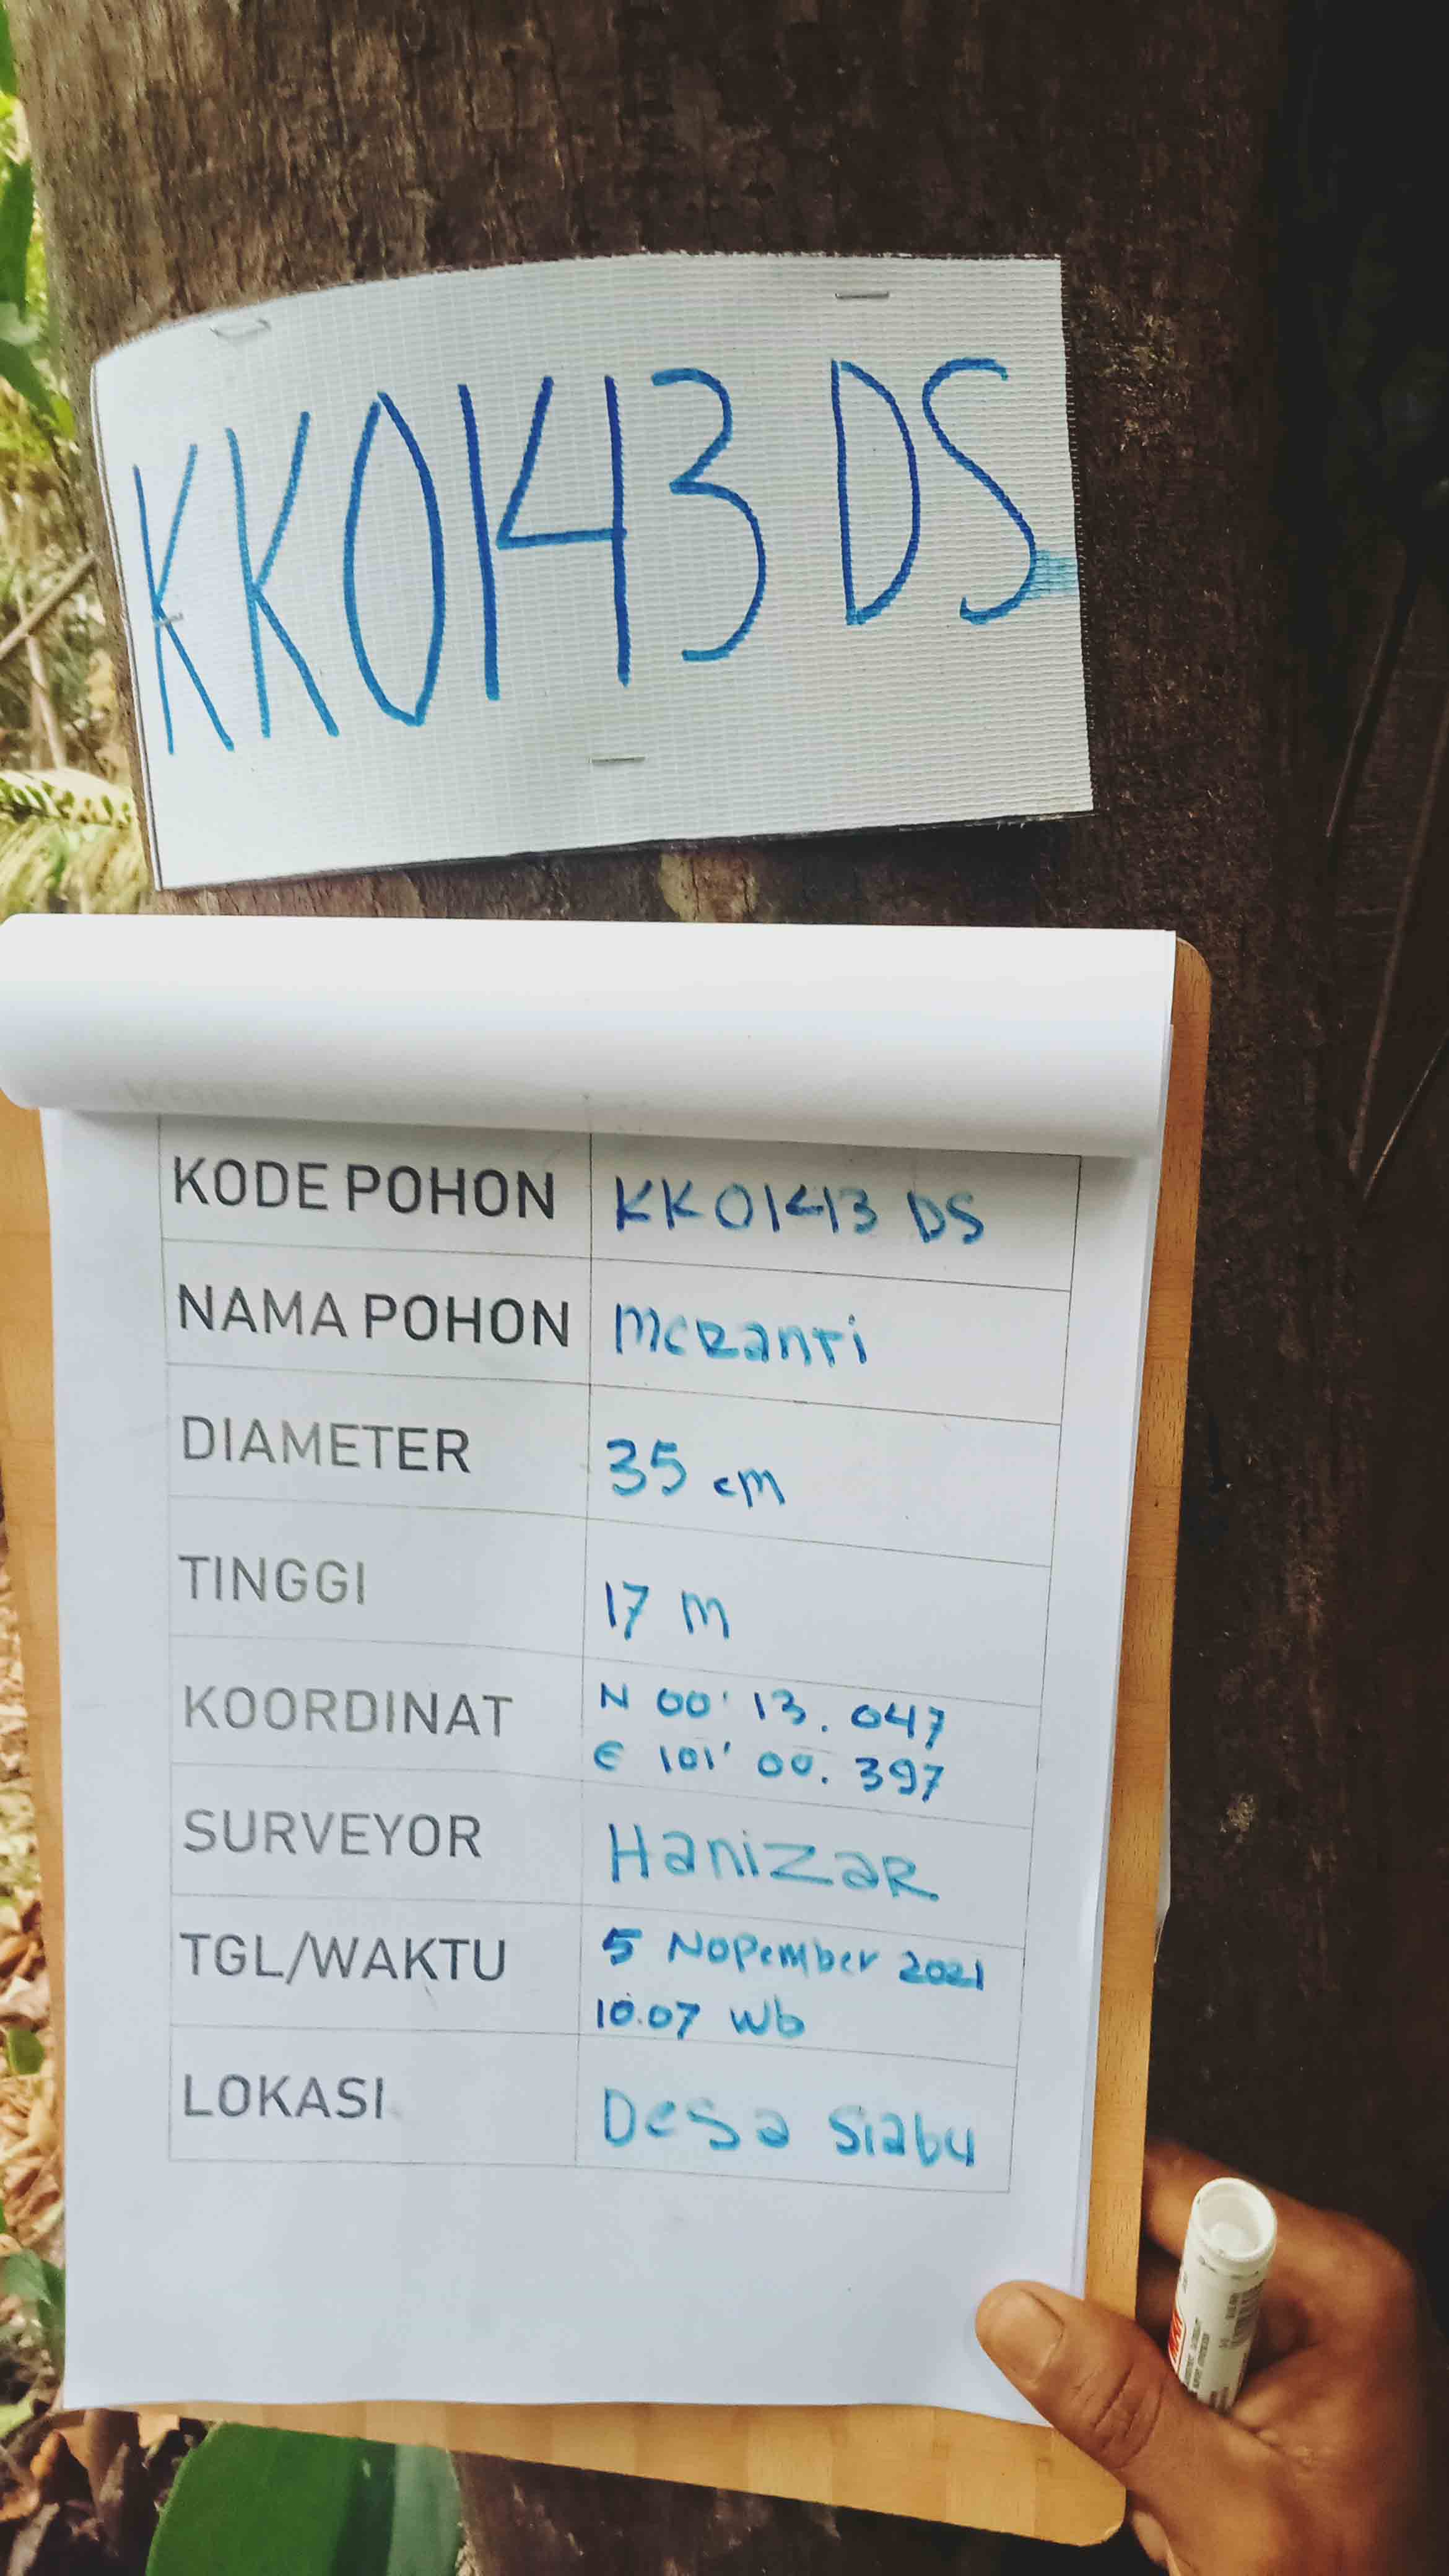 KK0143 DS
KODE POHON KK0143 DS
NAMA POHON meRanti
DIAMETER 35 cm
TINGGI 17 m
KOORDINAT N 00' 13. 047
E 101' 00. 397
SURVEYOR HanizaR
TGL/WAKTU 5 Nopember 2021
10.07 wb
LOKASI Desa Siabu